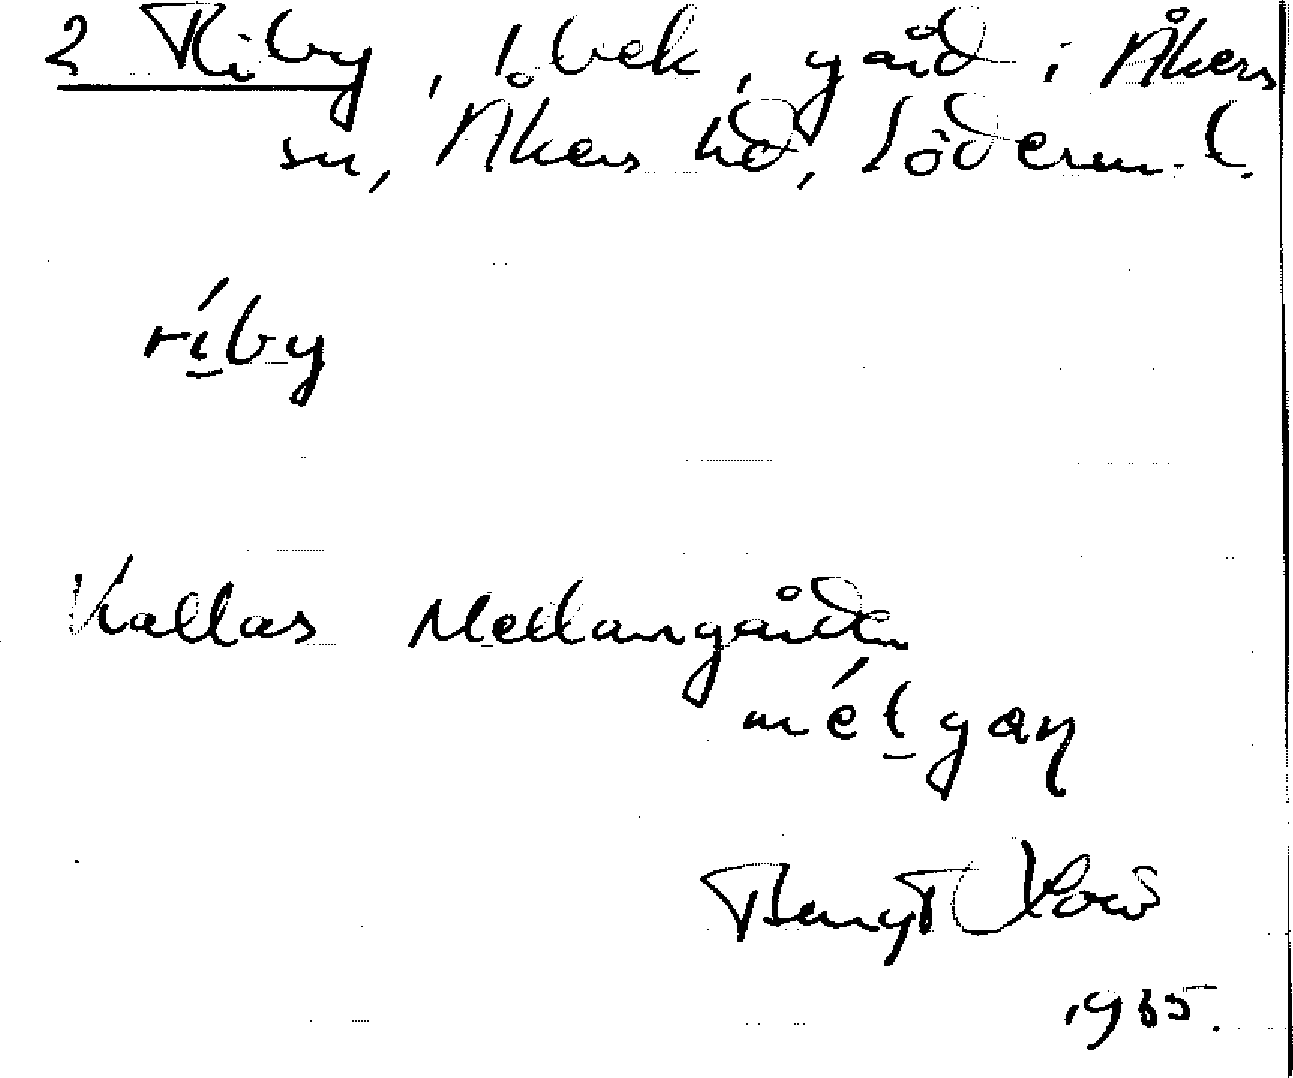 2 Riby, 1 bek, gård i Åkers
sn, Åkers hd, Söderm. l.
ríby
Kallas Mellangården
mélgaɳ
Bengt